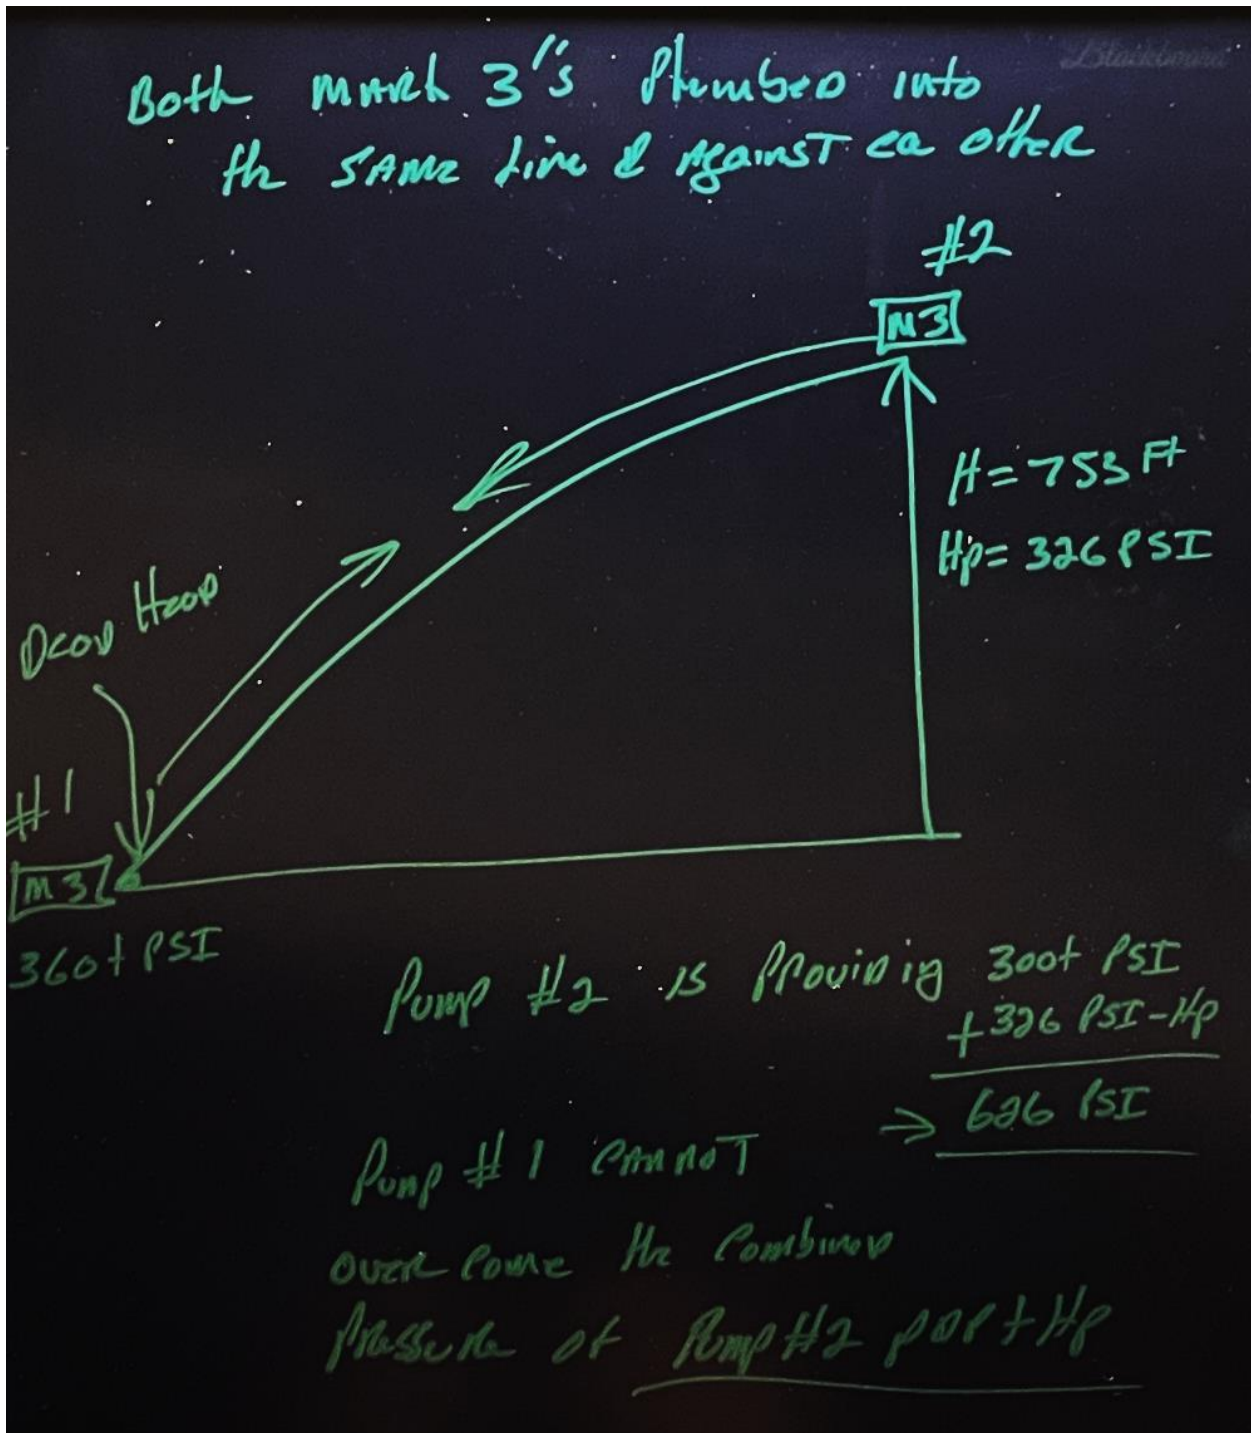 Both MARK 3's Plumbed into
the SAME Line & Against ea other
Blackboard
#2
M3
H = 753 Ft
Hp = 326 PSI
Dead Head
#1
M3
360+ PSI
Pump #2 is Providing 300+ PSI
+326 PSI-Hp
→ 626 PSI
Pump #1 CANNOT
over come the Combined
Pressure of Pump #2 PDP + Hp